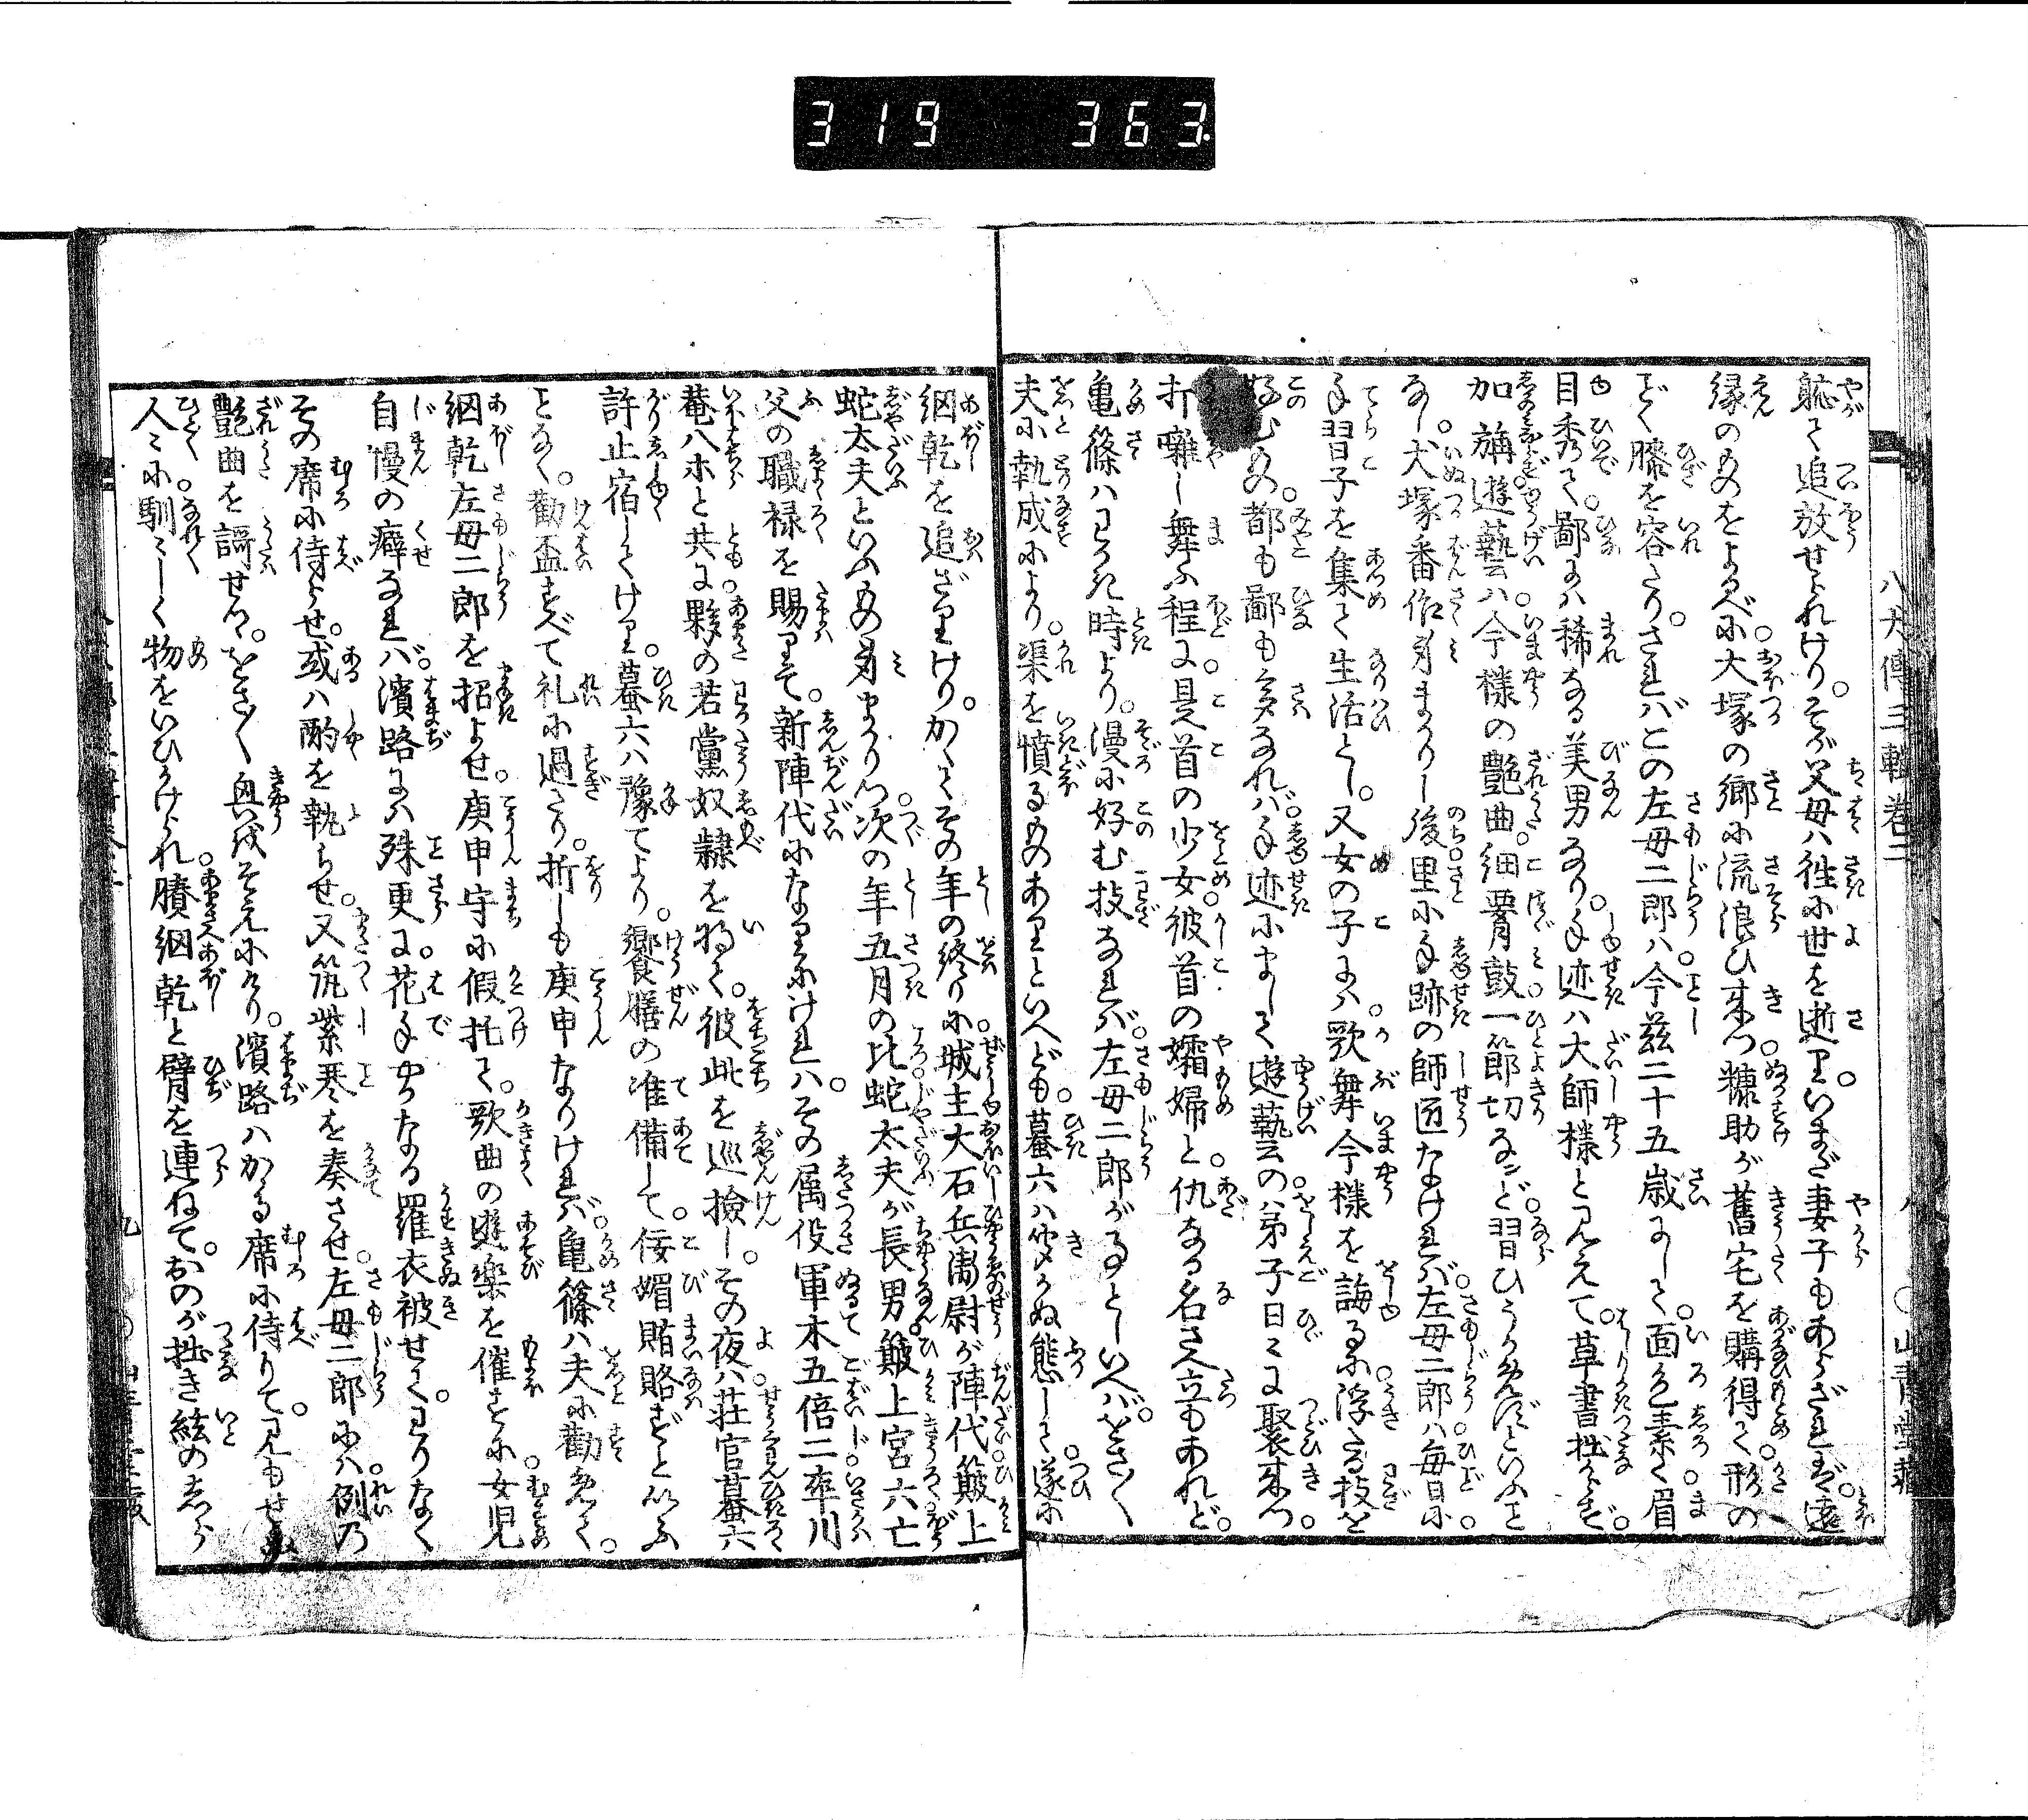 319 363
八犬傳三輯卷二
八
〇山青堂藏
軈て追放せられけり。そが父母ハ徃に世を逝りいまだ妻子もあらざれば。遠
縁のものをよるべに大塚の郷に流浪ひ來つ。糠助が舊宅を購得て。形の
ごとく膝を容たり。されバこの左母二郎ハ。今茲二十五歳にして。面色素く眉
目秀て。鄙にハ稀なる美男なり。手迹ハ大師様と見えて。草書拙からず。
加旃遊藝ハ。今様の艶曲。細腰鼓一節切など。習ひうかめずといふこと
なし。犬塚番作身まかりし後。里に手跡の師匠なけれバ。左母二郎ハ毎日に。
手習子を集て生活とし。又女の子にハ。歌舞今様を誨るに。浮たる技を
好むもの。都も鄙も多かれバ。手迹にまして遊藝の。弟子日日に聚來つ。
打囃し舞ふ程に。是首の少女彼首の孀婦と。仇なる名さへ立もあれど。
亀篠ハわかき時より。漫に好む技なれバ。左母二郎がことゝしいへバ。をさをさ
夫に執成により。渠を憤るものありといへども。蟇六ハ聞かぬ態して。遂に
網乾を追ざりけり。かくてその年の終りに。城主大石兵衛尉が陣代。簸上
蛇太夫といふもの身まかりつ。次の年五月の比。蛇太夫が長男。簸上宮六亡
父の職禄を賜りて。新陣代になりにけれバ。その属役軍木五倍二卒川
菴八ホと共に。夥の若黨奴隷を將て。彼此を巡檢し。その夜ハ荘官蟇六
許止宿してけり。蟇六ハ豫てより。饗膳の准備して。佞媚賄賂ずといふ
ことなく。勸盃すべて礼に過たり。折しも庚申なりけれバ。亀篠ハ夫に勸めて。
網乾左母二郎を招よせ。庚申守に假托て。歌曲の遊樂を催すに。女児
自慢の癖なれバ。濱路にハ殊更に。花手やかなる羅衣被せて。わりなく
その席に侍らせ。或ハ酌を執らせ。又筑紫琴を奏させ。左母二郎にハ例の
艶曲を謌せて。をさをさ興をそえにけり。濱路ハかかる席に侍りて。見もせぬ
人人に馴馴しく。物をいひかけられ。賸網乾と臂を連ねて。おのが拙き絃のしら
九